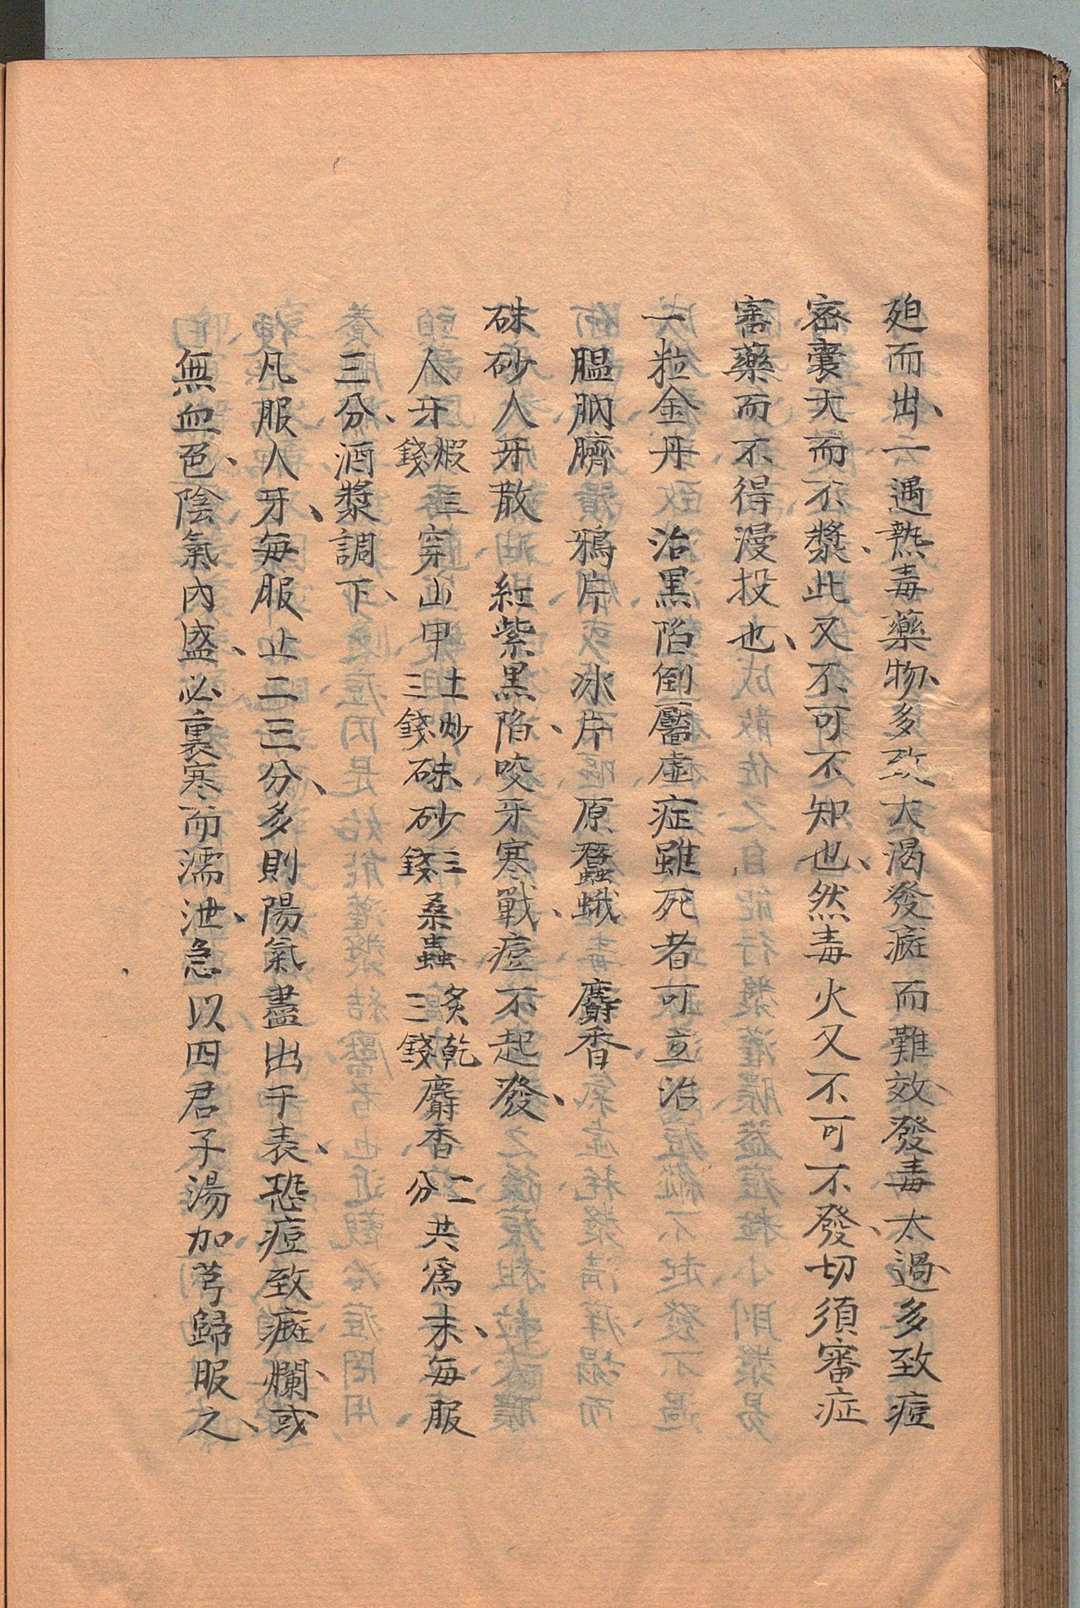 廹而出、一遇熱毒藥物、多致大渴發癍而難效發毒太過多致痘
密囊大而不漿、此又不可不知也、然毒火又不可不發、切須審症
審藥而不得漫投也、
一粒金丹　治黑陷倒靨虛症雖死者可立治
膃肭臍　鴉片　冰片　原蠶蛾　麝香
硃砂人牙散　紅紫黑陷、咬牙寒戰、痘不起發、
人牙煆三錢　穿山甲土炒三錢　硃砂三錢　桑蟲炙乾三錢　麝香二分　共為末、每服
三分、酒漿調下、
凡服人牙、每服止二三分、多則陽氣盡出于表、恐痘致癍爛、或
無血色、陰氣內盛、必裏寒而濡泄、急以四君子湯加芎歸服之、